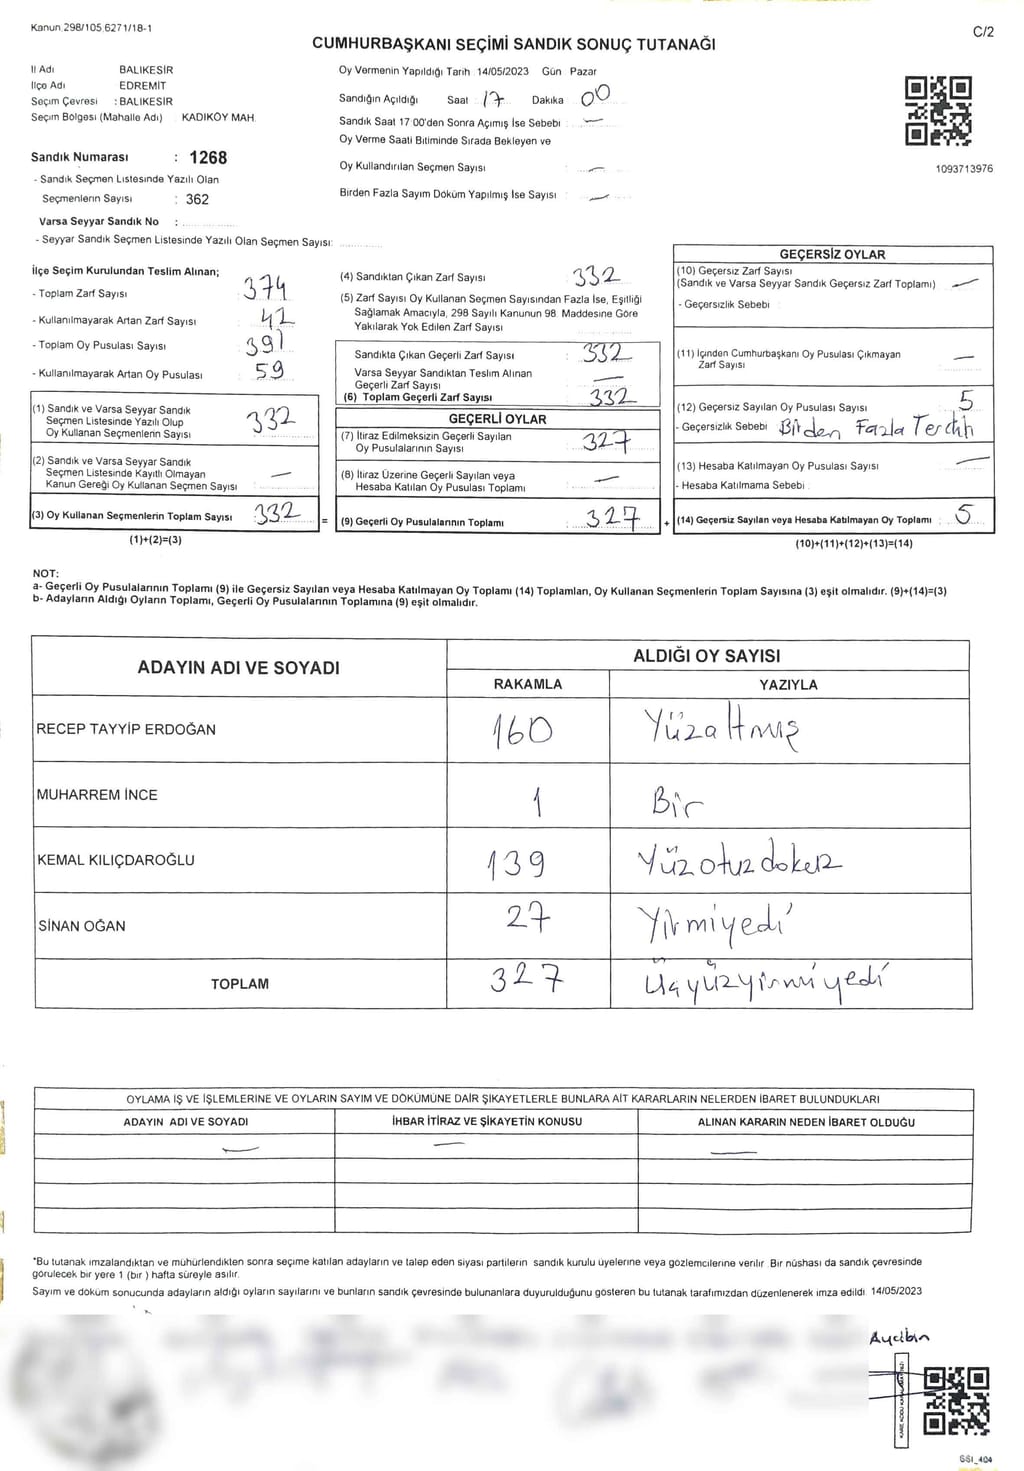 Kanun 298/105 6271/18-1
C/2
CUMHURBAŞKANI SEÇİMİ SANDIK SONUÇ TUTANAĞI
İl Adı BALIKESİR
İlçe Adı EDREMİT
Seçim Çevresi : BALIKESİR
Seçim Bölgesi (Mahalle Adı) KADIKÖY MAH.
Sandık Numarası : 1268
- Sandık Seçmen Listesinde Yazılı Olan
Seçmenlerin Sayısı : 362
Varsa Seyyar Sandık No :
- Seyyar Sandık Seçmen Listesinde Yazılı Olan Seçmen Sayısı:
Oy Vermenin Yapıldığı Tarih 14/05/2023 Gün Pazar
Sandığın Açıldığı Saat 17 Dakika 00
Sandık Saat 17 00'den Sonra Açımış İse Sebebi : —
Oy Verme Saati Bitiminde Sırada Bekleyen ve
Oy Kullandırılan Seçmen Sayısı : —
Birden Fazla Sayım Döküm Yapılmış İse Sayısı : —
1093713976
İlçe Seçim Kurulundan Teslim Alınan;
- Toplam Zarf Sayısı : 374
- Kullanılmayarak Artan Zarf Sayısı : 42
- Toplam Oy Pusulası Sayısı : 391
- Kullanılmayarak Artan Oy Pusulası : 59
(1) Sandık ve Varsa Seyyar Sandık
Seçmen Listesinde Yazılı Olup
Oy Kullanan Seçmenlerin Sayısı : 332
(2) Sandık ve Varsa Seyyar Sandık
Seçmen Listesinde Kayıtlı Olmayan
Kanun Gereği Oy Kullanan Seçmen Sayısı : —
(3) Oy Kullanan Seçmenlerin Toplam Sayısı : 332
(1)+(2)=(3)
=
(4) Sandıktan Çıkan Zarf Sayısı 332
(5) Zarf Sayısı Oy Kullanan Seçmen Sayısından Fazla İse, Eşitliği
Sağlamak Amacıyla, 298 Sayılı Kanunun 98. Maddesine Göre
Yakılarak Yok Edilen Zarf Sayısı :
Sandıkta Çıkan Geçerli Zarf Sayısı : 332
Varsa Seyyar Sandıktan Teslim Alınan
Geçerli Zarf Sayısı : —
(6) Toplam Geçerli Zarf Sayısı : 332
GEÇERLİ OYLAR
(7) İtiraz Edilmeksizin Geçerli Sayılan
Oy Pusulalarının Sayısı : 327
(8) İtiraz Üzerine Geçerli Sayılan veya
Hesaba Katılan Oy Pusulası Toplamı : —
(9) Geçerli Oy Pusulalarının Toplamı : 327
+
GEÇERSİZ OYLAR
(10) Geçersiz Zarf Sayısı
(Sandık ve Varsa Seyyar Sandık Geçersiz Zarf Toplamı) : —
- Geçersizlik Sebebi :
(11) İçinden Cumhurbaşkanı Oy Pusulası Çıkmayan
Zarf Sayısı : —
(12) Geçersiz Sayılan Oy Pusulası Sayısı : 5
- Geçersizlik Sebebi : Birden Fazla Tercih
(13) Hesaba Katılmayan Oy Pusulası Sayısı : —
- Hesaba Katılmama Sebebi :
(14) Geçersiz Sayılan veya Hesaba Katılmayan Oy Toplamı : 5
(10)+(11)+(12)+(13)=(14)
NOT:
a- Geçerli Oy Pusulalarının Toplamı (9) ile Geçersiz Sayılan veya Hesaba Katılmayan Oy Toplamı (14) Toplamları, Oy Kullanan Seçmenlerin Toplam Sayısına (3) eşit olmalıdır. (9)+(14)=(3)
b- Adayların Aldığı Oyların Toplamı, Geçerli Oy Pusulalarının Toplamına (9) eşit olmalıdır.
ADAYIN ADI VE SOYADI ALDIĞI OY SAYISI
RAKAMLA YAZIYLA
RECEP TAYYİP ERDOĞAN 160 Yüzaltmış
MUHARREM İNCE 1 Bir
KEMAL KILIÇDAROĞLU 139 Yüzotuzdokuz
SİNAN OĞAN 27 Yirmiyedi
TOPLAM 327 Üçyüzyirmiyedi
OYLAMA İŞ VE İŞLEMLERİNE VE OYLARIN SAYIM VE DÖKÜMÜNE DAİR ŞİKAYETLERLE BUNLARA AİT KARARLARIN NELERDEN İBARET BULUNDUKLARI
ADAYIN ADI VE SOYADI İHBAR İTİRAZ VE ŞİKAYETİN KONUSU ALINAN KARARIN NEDEN İBARET OLDUĞU
— — —
*Bu tutanak imzalandıktan ve mühürlendikten sonra seçime katılan adayların ve talep eden siyasi partilerin sandık kurulu üyelerine veya gözlemcilerine verilir. Bir nüshası da sandık çevresinde
görülecek bir yere 1 (bir ) hafta süreyle asılır.
Sayım ve döküm sonucunda adayların aldığı oyların sayılarını ve bunların sandık çevresinde bulunanlara duyurulduğunu gösteren bu tutanak tarafımızdan düzenlenerek imza edildi. 14/05/2023